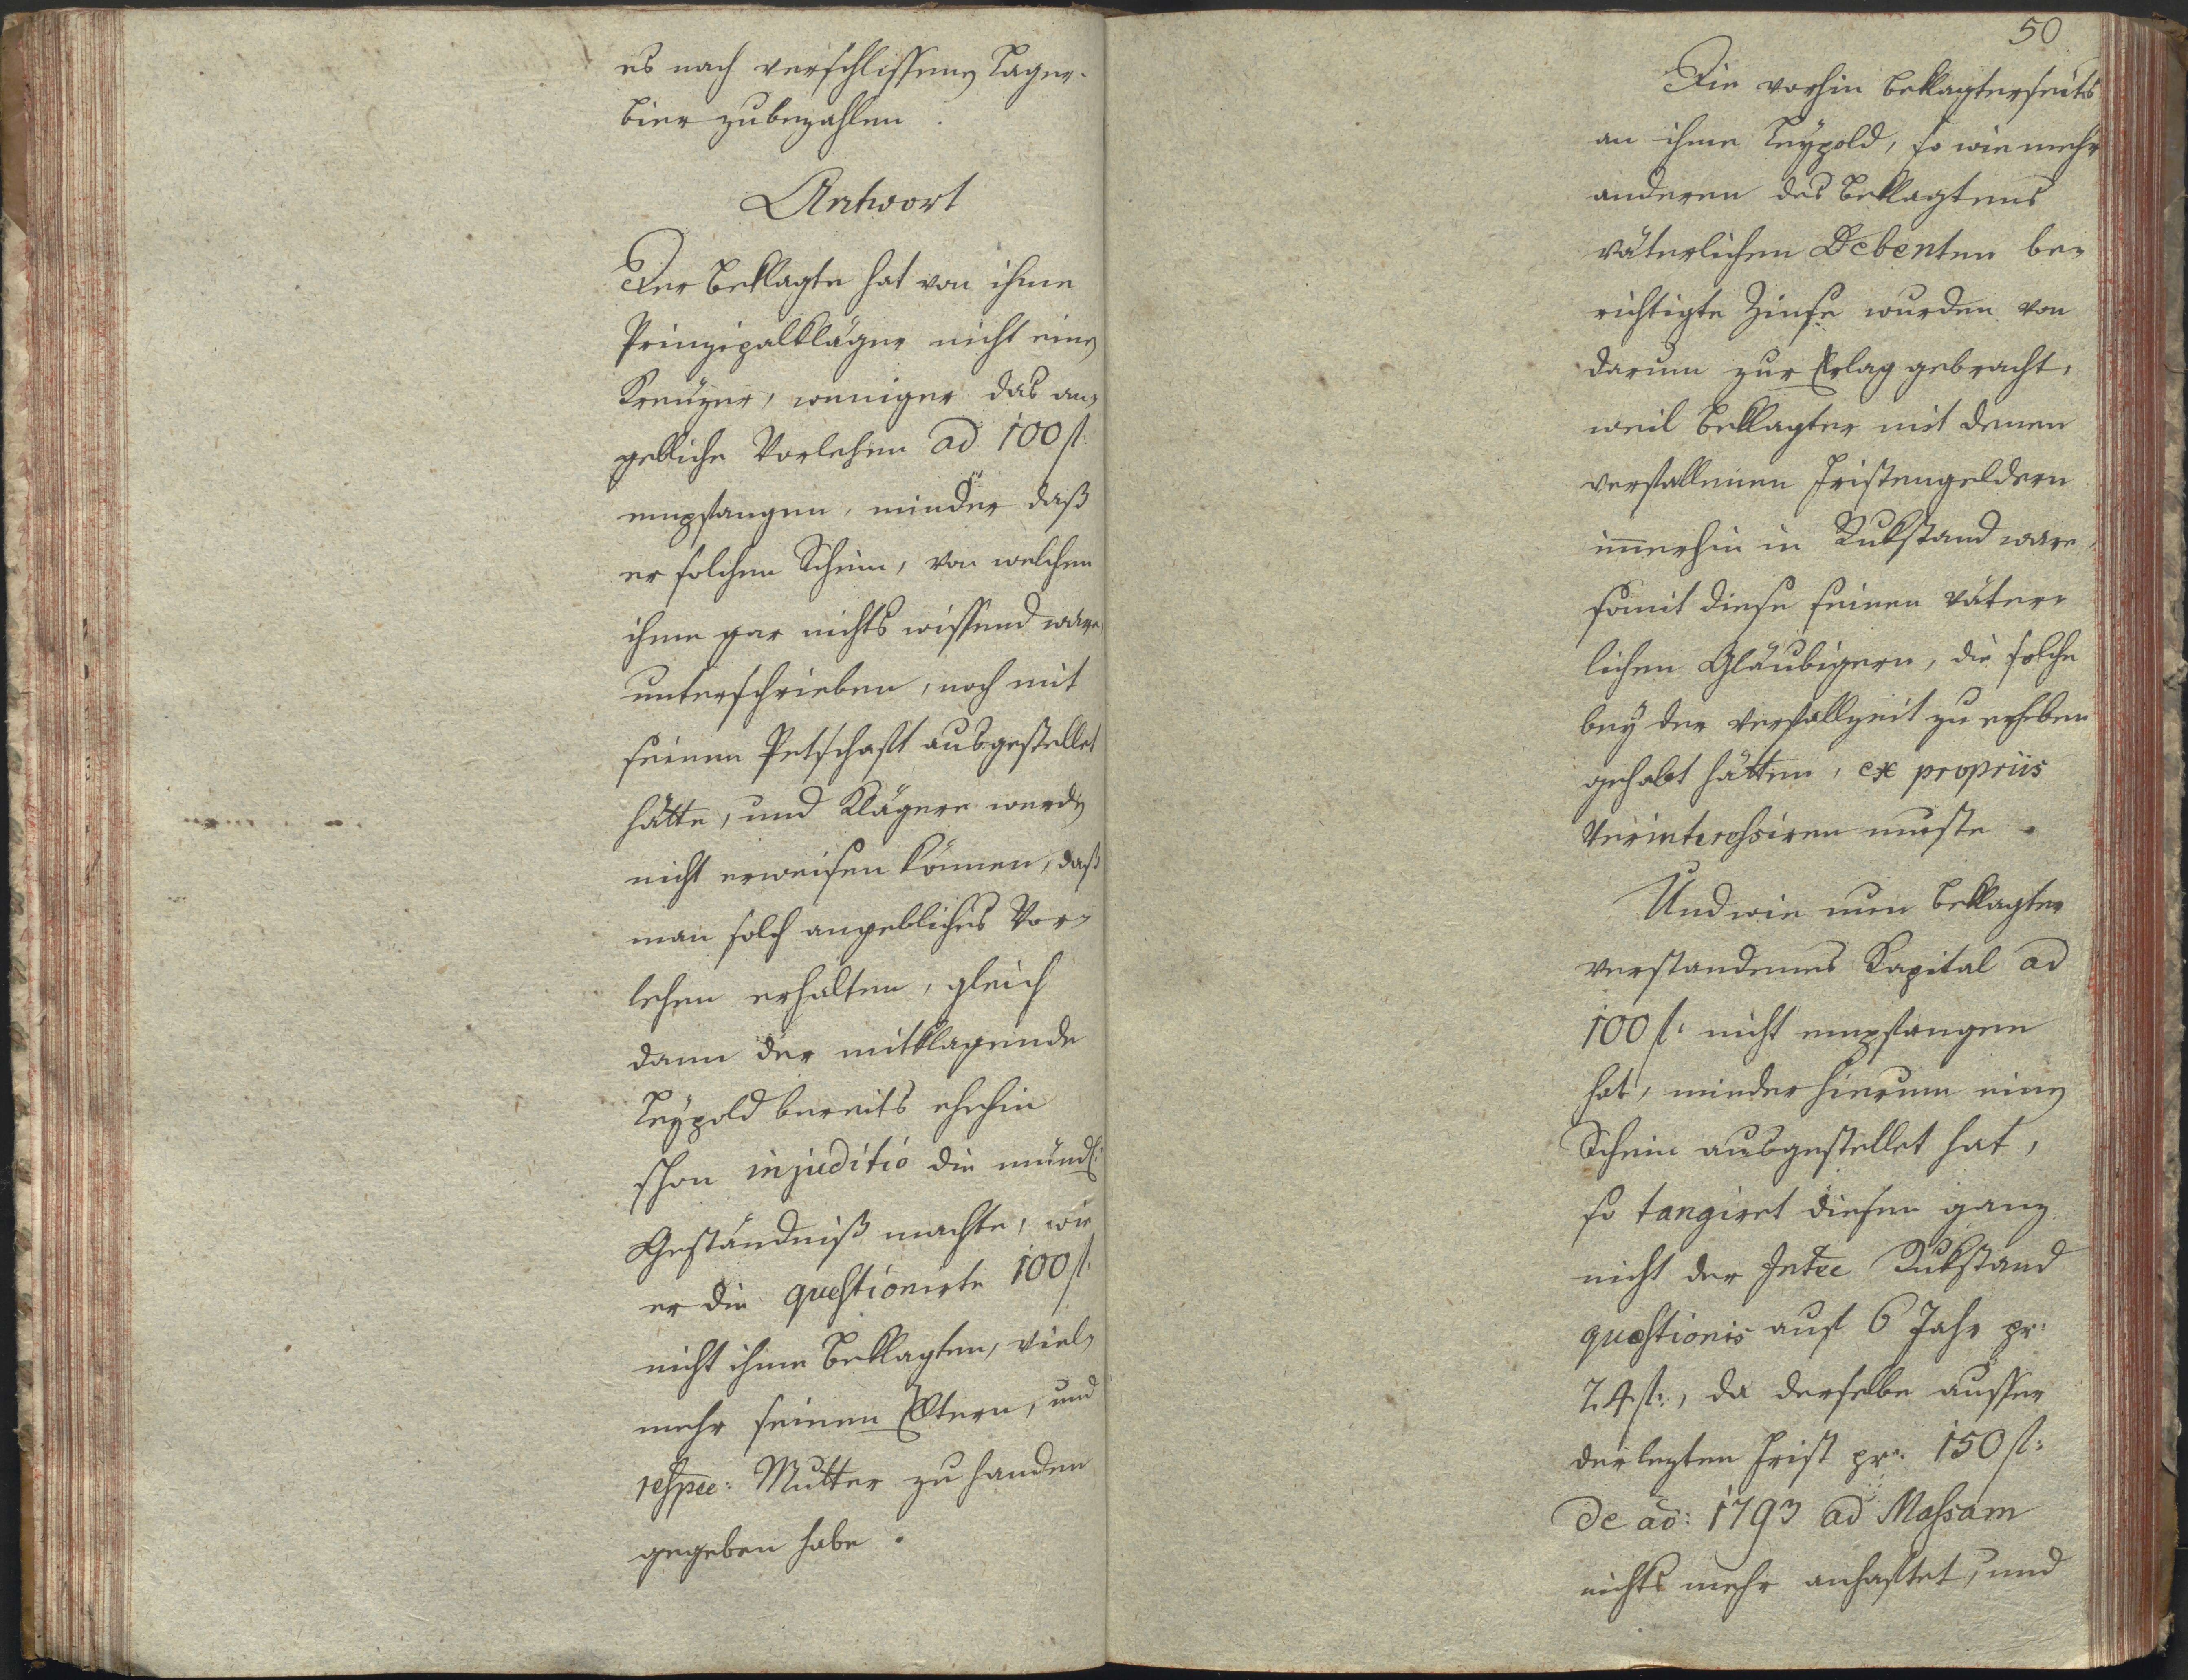 es nach verschlissenen Lager-
bier zubezahlen.
Antwort
Der Beklagte hat von ihme
Prinzipalkläger nicht einen
Kreuzer, weniger das an-
gebliche Vorlehen ad 100 fl:
empfangen, minder daß
er solchen Schein, von welchen
ihme gar nichts wissend ware
unterschrieben, noch mit
seinem Petschaft ausgestellet
hätte, und Klägere werden
nicht erweisen können, daß
man solch angebliches Vor-
lehen erhalten, gleich
dann der mitklagende
Leypold bereits ehehin
schon in juditio die mündl:
Geständniß machte, wie
er die questionirte 100 fl:
nicht ihme Beklagten, viel-
mehr seinen Eltern, und
respee: Mutter zu handen
gegeben habe.
50
Die vorhin beklagterseits
an ihme Leypold, so wie mehr
anderen des Beklagtens
väterlichen Debenten be-
richtigte Zinse wurden von
darum zur Erlag gebracht,
weil Beklagter mit denen
verfallenen Fristengeldern
immerhin in Rukstand ware,
somit diese seinen väter-
lichen Gläubigern, die solche
bey der Verfallzeit zu erheben
gehabt hätten, ex propriis
verinteressiren muste.
Und wie nun Beklagter
verstandenes Kapital ad
100 fl: nicht empfangen
hat, minder hierum einen
Schein ausgestellet hat,
so tangiret diesen ganz
nicht der Intee Rukstand
questionis auf 6 Jahr pr:
24 fl:, da derselbe ausser
der lezten Frist pr: 150 fl:
de ao: 1793 ad Massam
nichts mehr anhaftet, und